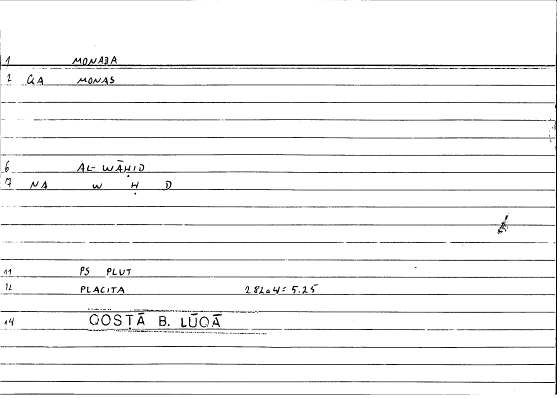 1 MONADA
2 QA MONAS
6 AL-WĀḤID
7 NA W Ḥ D
11 PS PLUT
12 PLACITA 282a4=5.25
14 QOSṬĀ B. LŪQĀ